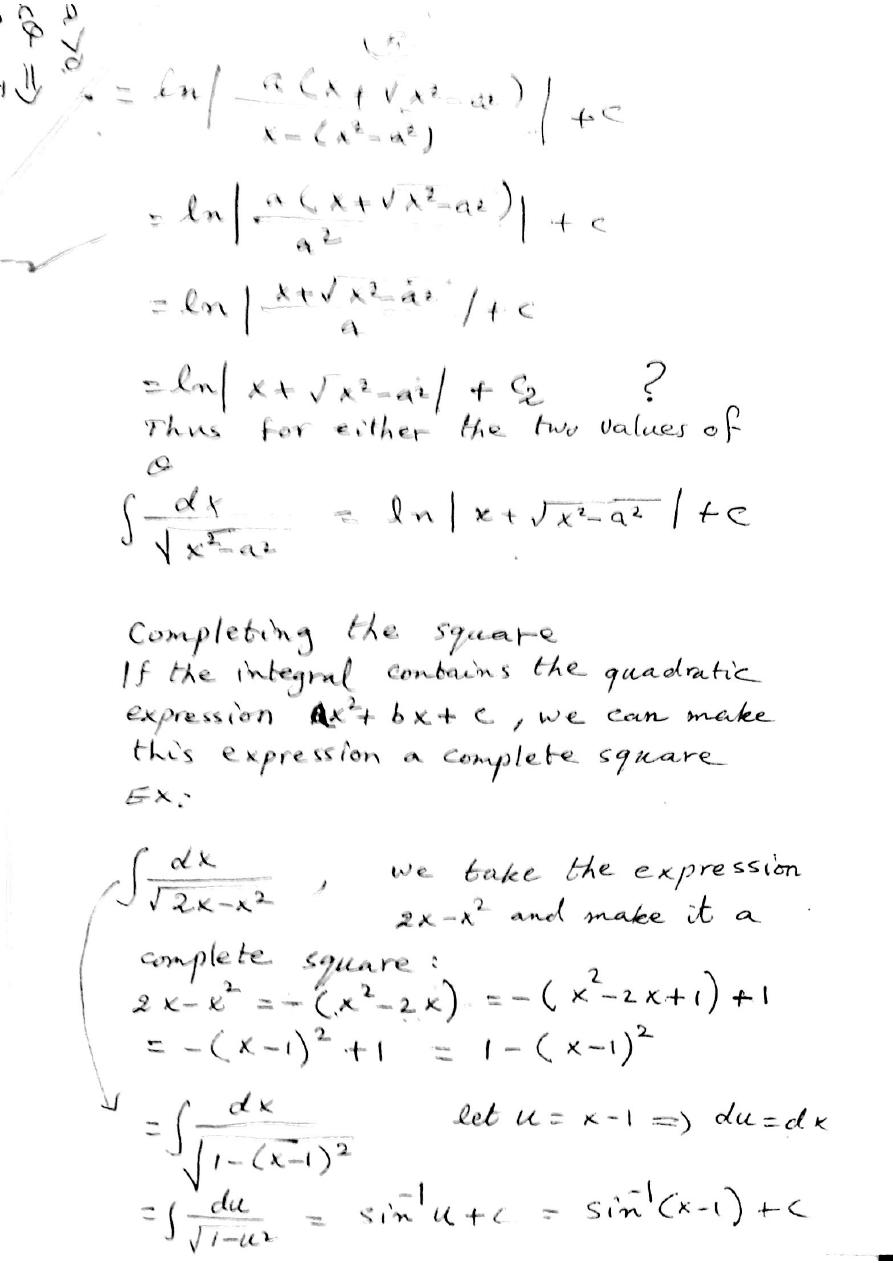 = ln | a(x+√x²-a²) / x-(x²-a²) | +c
= ln | a(x+√x²-a²) / a² | + c
= ln | x+√x²-a² / a | + c
= ln | x+√x²-a² | + C₂ ?
Thus for either the two values of
θ
∫ dx / √x²-a² = ln | x+√x²-a² | +c
Completing the square
If the integral contains the quadratic
expression ax²+bx+c, we can make
this expression a complete square
Ex:
∫ dx / √2x-x² , we take the expression
2x-x² and make it a
complete square :
2x-x² = -(x²-2x) = -(x²-2x+1)+1
= -(x-1)²+1 = 1-(x-1)²
= ∫ dx / √1-(x-1)² let u = x-1 ⇒ du=dx
= ∫ du / √1-u² = sin⁻¹u+c = sin⁻¹(x-1)+c